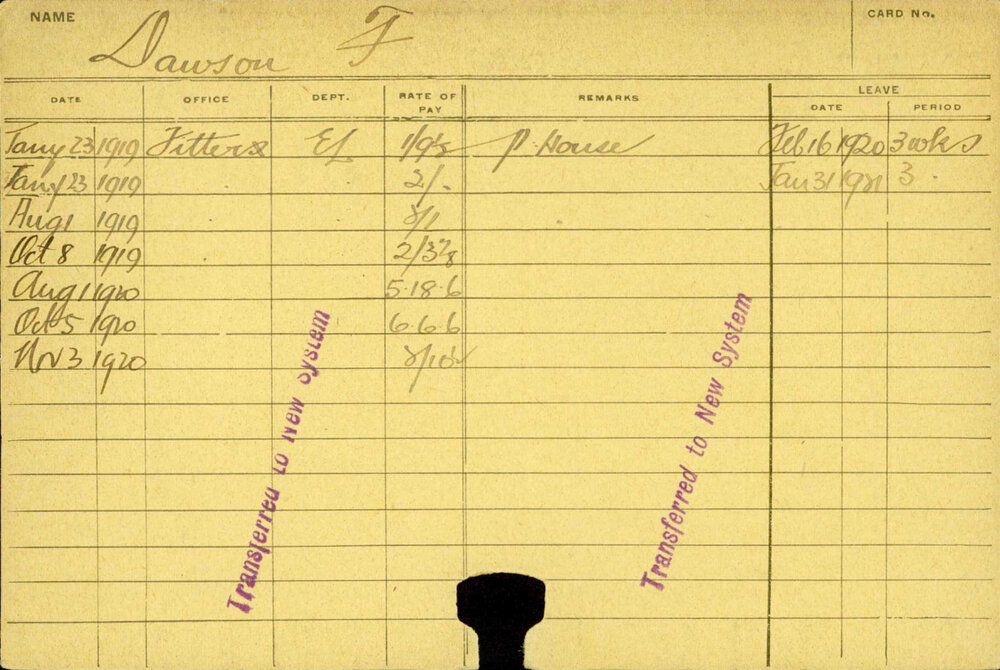 NAME
CARD No.
Dawson F
DATE OFFICE DEPT. RATE OF PAY REMARKS LEAVE
DATE PERIOD
Jany 23 1919 Fitters EL 1/9½ P. House Feb 16 1920 3 wks
Jany 23 1919 2/- Jan 31 1921 3
Aug 1 1919 2/1
Oct 8 1919 2/3⅞
Aug 1 1920 5.18.6
Oct 5 1920 6.6.6
Nov 3 1920
Transferred to New System
Transferred to New System